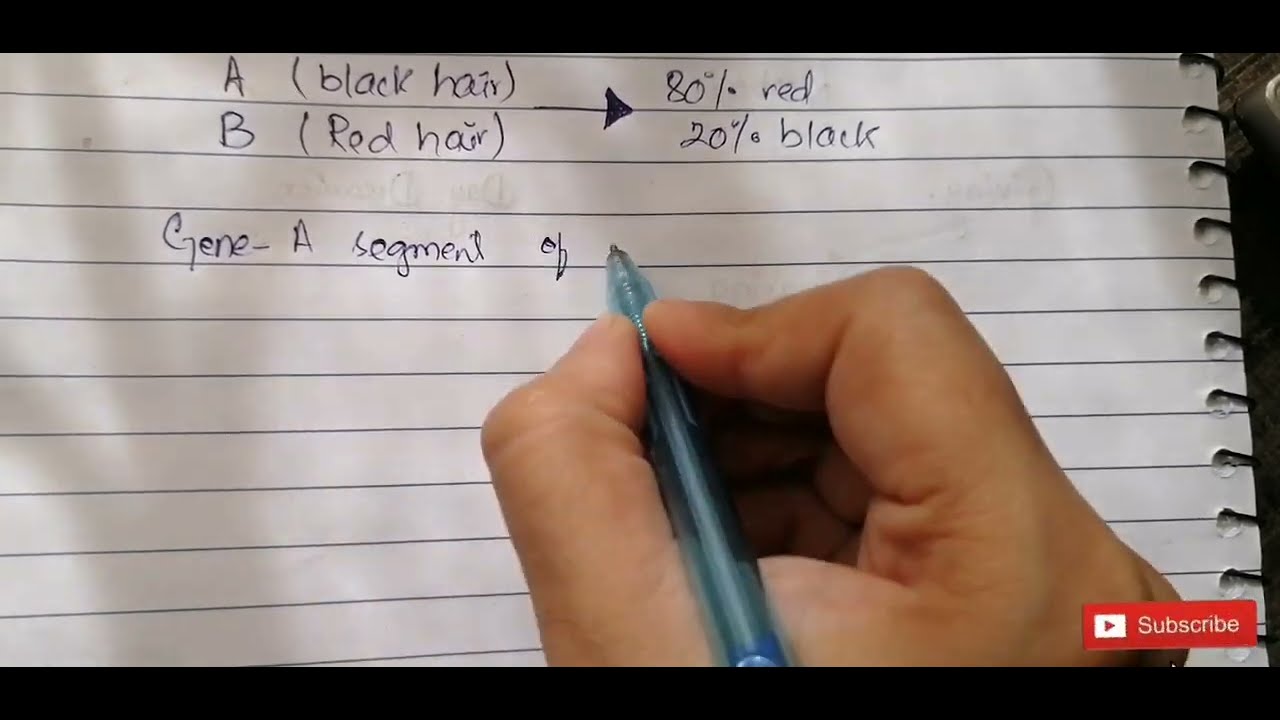 A (black hair) → 80% red
B (Red hair) 20% black
Gene- A segment of
Subscribe